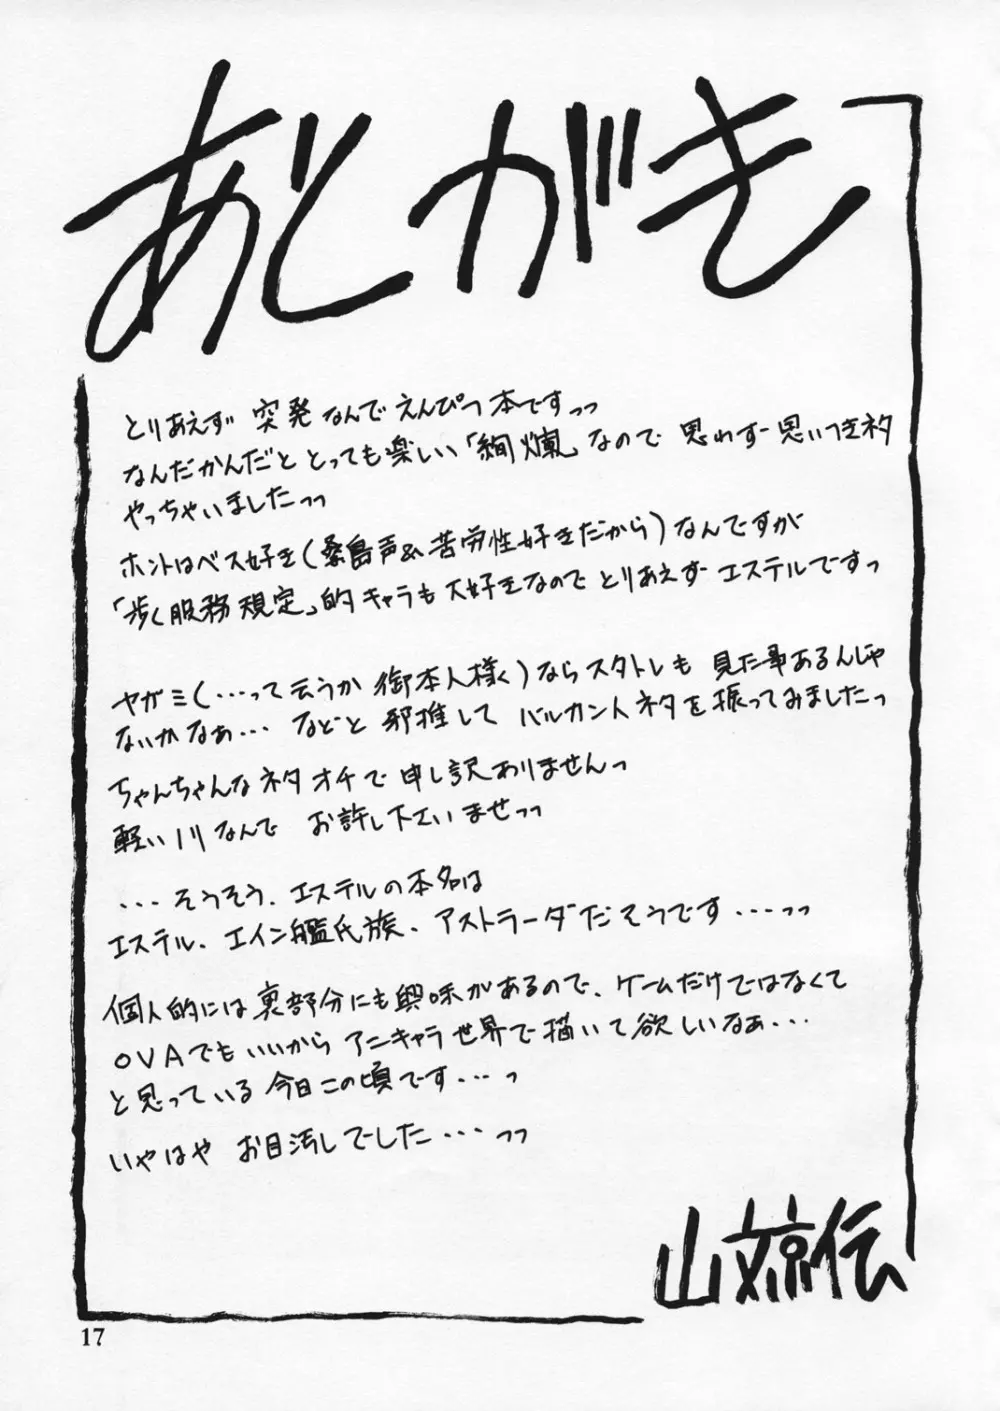 あとがき
とりあえず 突発なんでえんぴつ本ですっっ
なんだかんだと とっても楽しい「絢爛」なので 思わず思いつきネタ
やっちゃいましたっっ
ホントはベス好き(桑島声&苦労性好きだから)なんですが
「歩く服務規定」的キャラも大好きなので とりあえず エステルですっ
ヤガミ(…って云うか 御本人様く)ならスタトレも 見た事あるんじゃ
ないかなぁ… などと 邪推して バルカン人ネタを振ってみましたっ
ちゃんちゃんなネタオチで 申し訳ありませんっ
軽いノリなんで お許し下さいませっっ
…そうそう、エステルの本名は
エステル、エイン艦氏族、アストラーダだそうです…っっ
個人的には裏部分にも興味があるので、ゲームだけではなくて
OVAでもいいから アニキャラ世界で描いて欲しいなぁ…
と思っている今日この頃です…っ
いやはや お目汚しでした…っっ
山文京伝
17